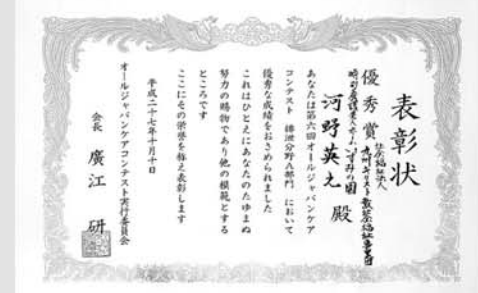 表彰状
優秀賞
社会福祉法人
九州キリスト教社会福祉事業団
特別養護老人ホームいずみの園
河野英尤 殿
あなたは第六回オールジャパンケア
コンテスト 排泄分野A部門 において
優秀な成績をおさめられました
これはひとえにあなたのたゆまぬ
努力の賜物であり他の模範とする
ところです
ここにその栄誉を称え表彰します
平成二十七年十月十日
オールジャパンケアコンテスト実行委員会
会長 廣江 研